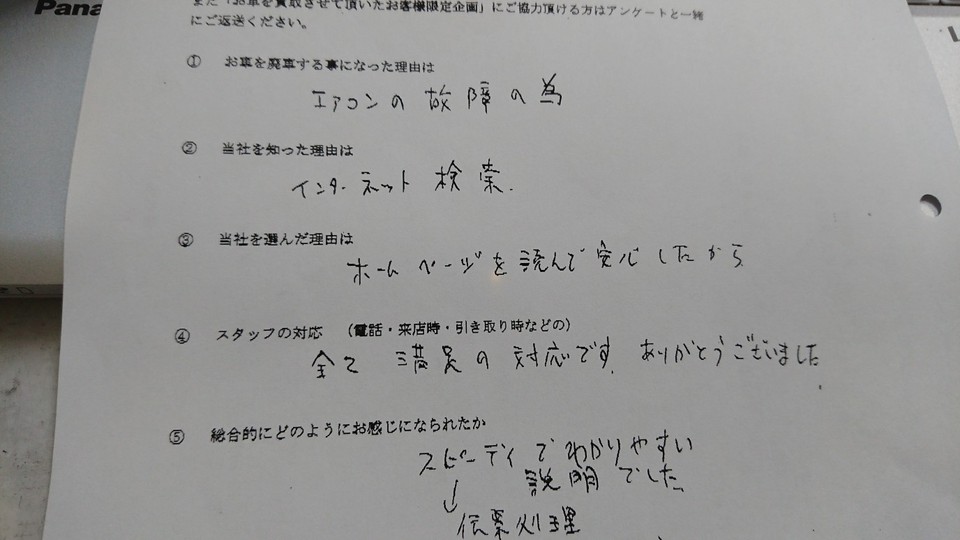 Pana
また「お車を買取させて頂いたお客様限定企画」にご協力頂ける方はアンケートと一緒
にご返送ください。
① お車を廃車する事になった理由は
エアコンの故障の為
② 当社を知った理由は
インターネット検索.
③ 当社を選んだ理由は
ホームページを読んで安心したから
④ スタッフの対応 （電話・来店時・引き取り時などの）
全て満足の対応です。ありがとうございました.
⑤ 総合的にどのようにお感じになられたか
スピーディでわかりやすい
説明でした。
↓
伝票処理